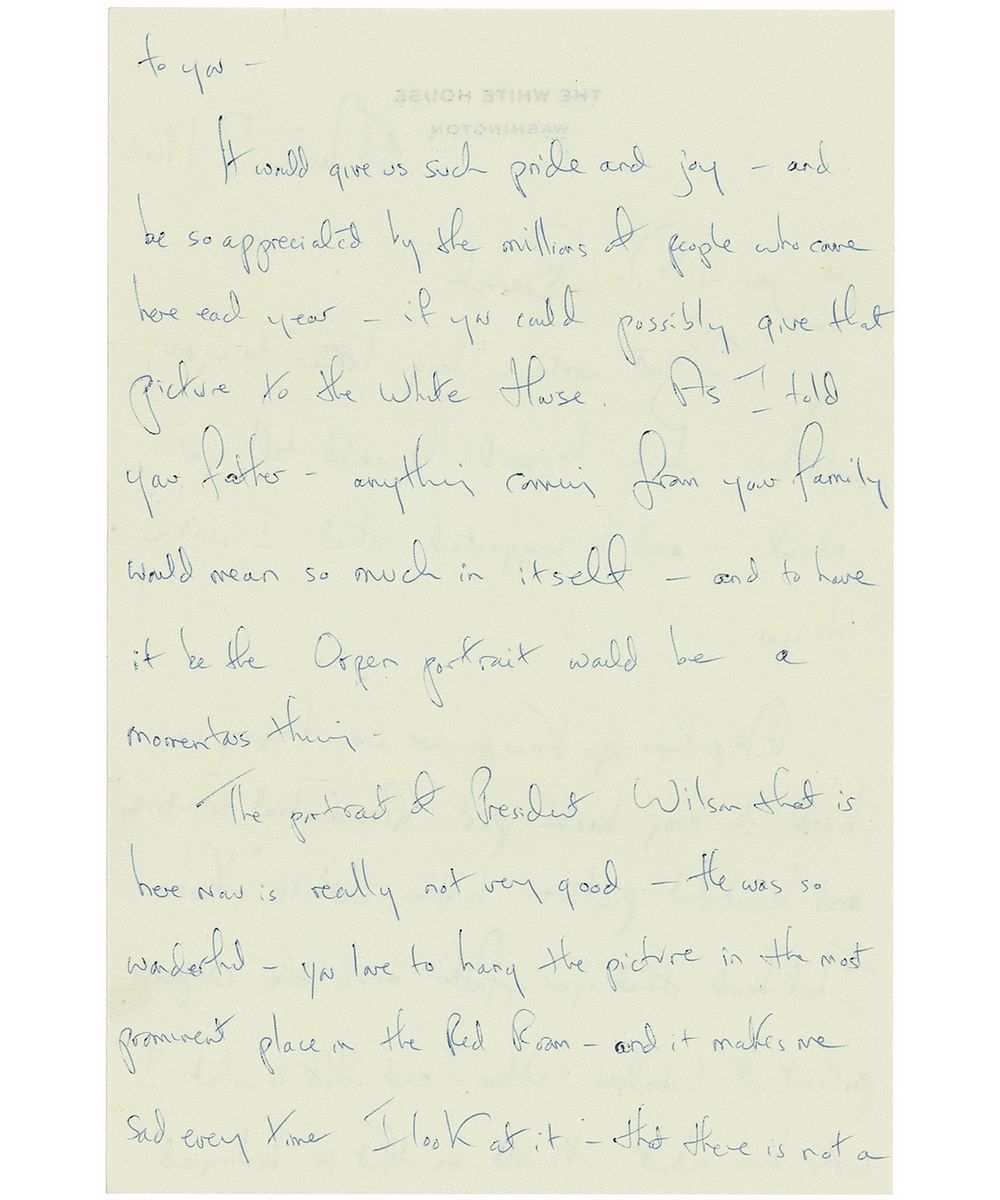 to you —
THE WHITE HOUSE
WASHINGTON
It would give us such pride and joy — and
be so appreciated by the millions of people who come
here each year — if you could possibly give that
picture to the White House. As I told
your father — anything coming from your family
would mean so much in itself — and to have
it be the Orpen portrait would be a
momentous thing —
The portrait of President Wilson that is
here now is really not very good — He was so
wonderful — you love to hang the picture in the most
prominent place in the Red Room — and it makes me
sad every time I look at it — that there is not a